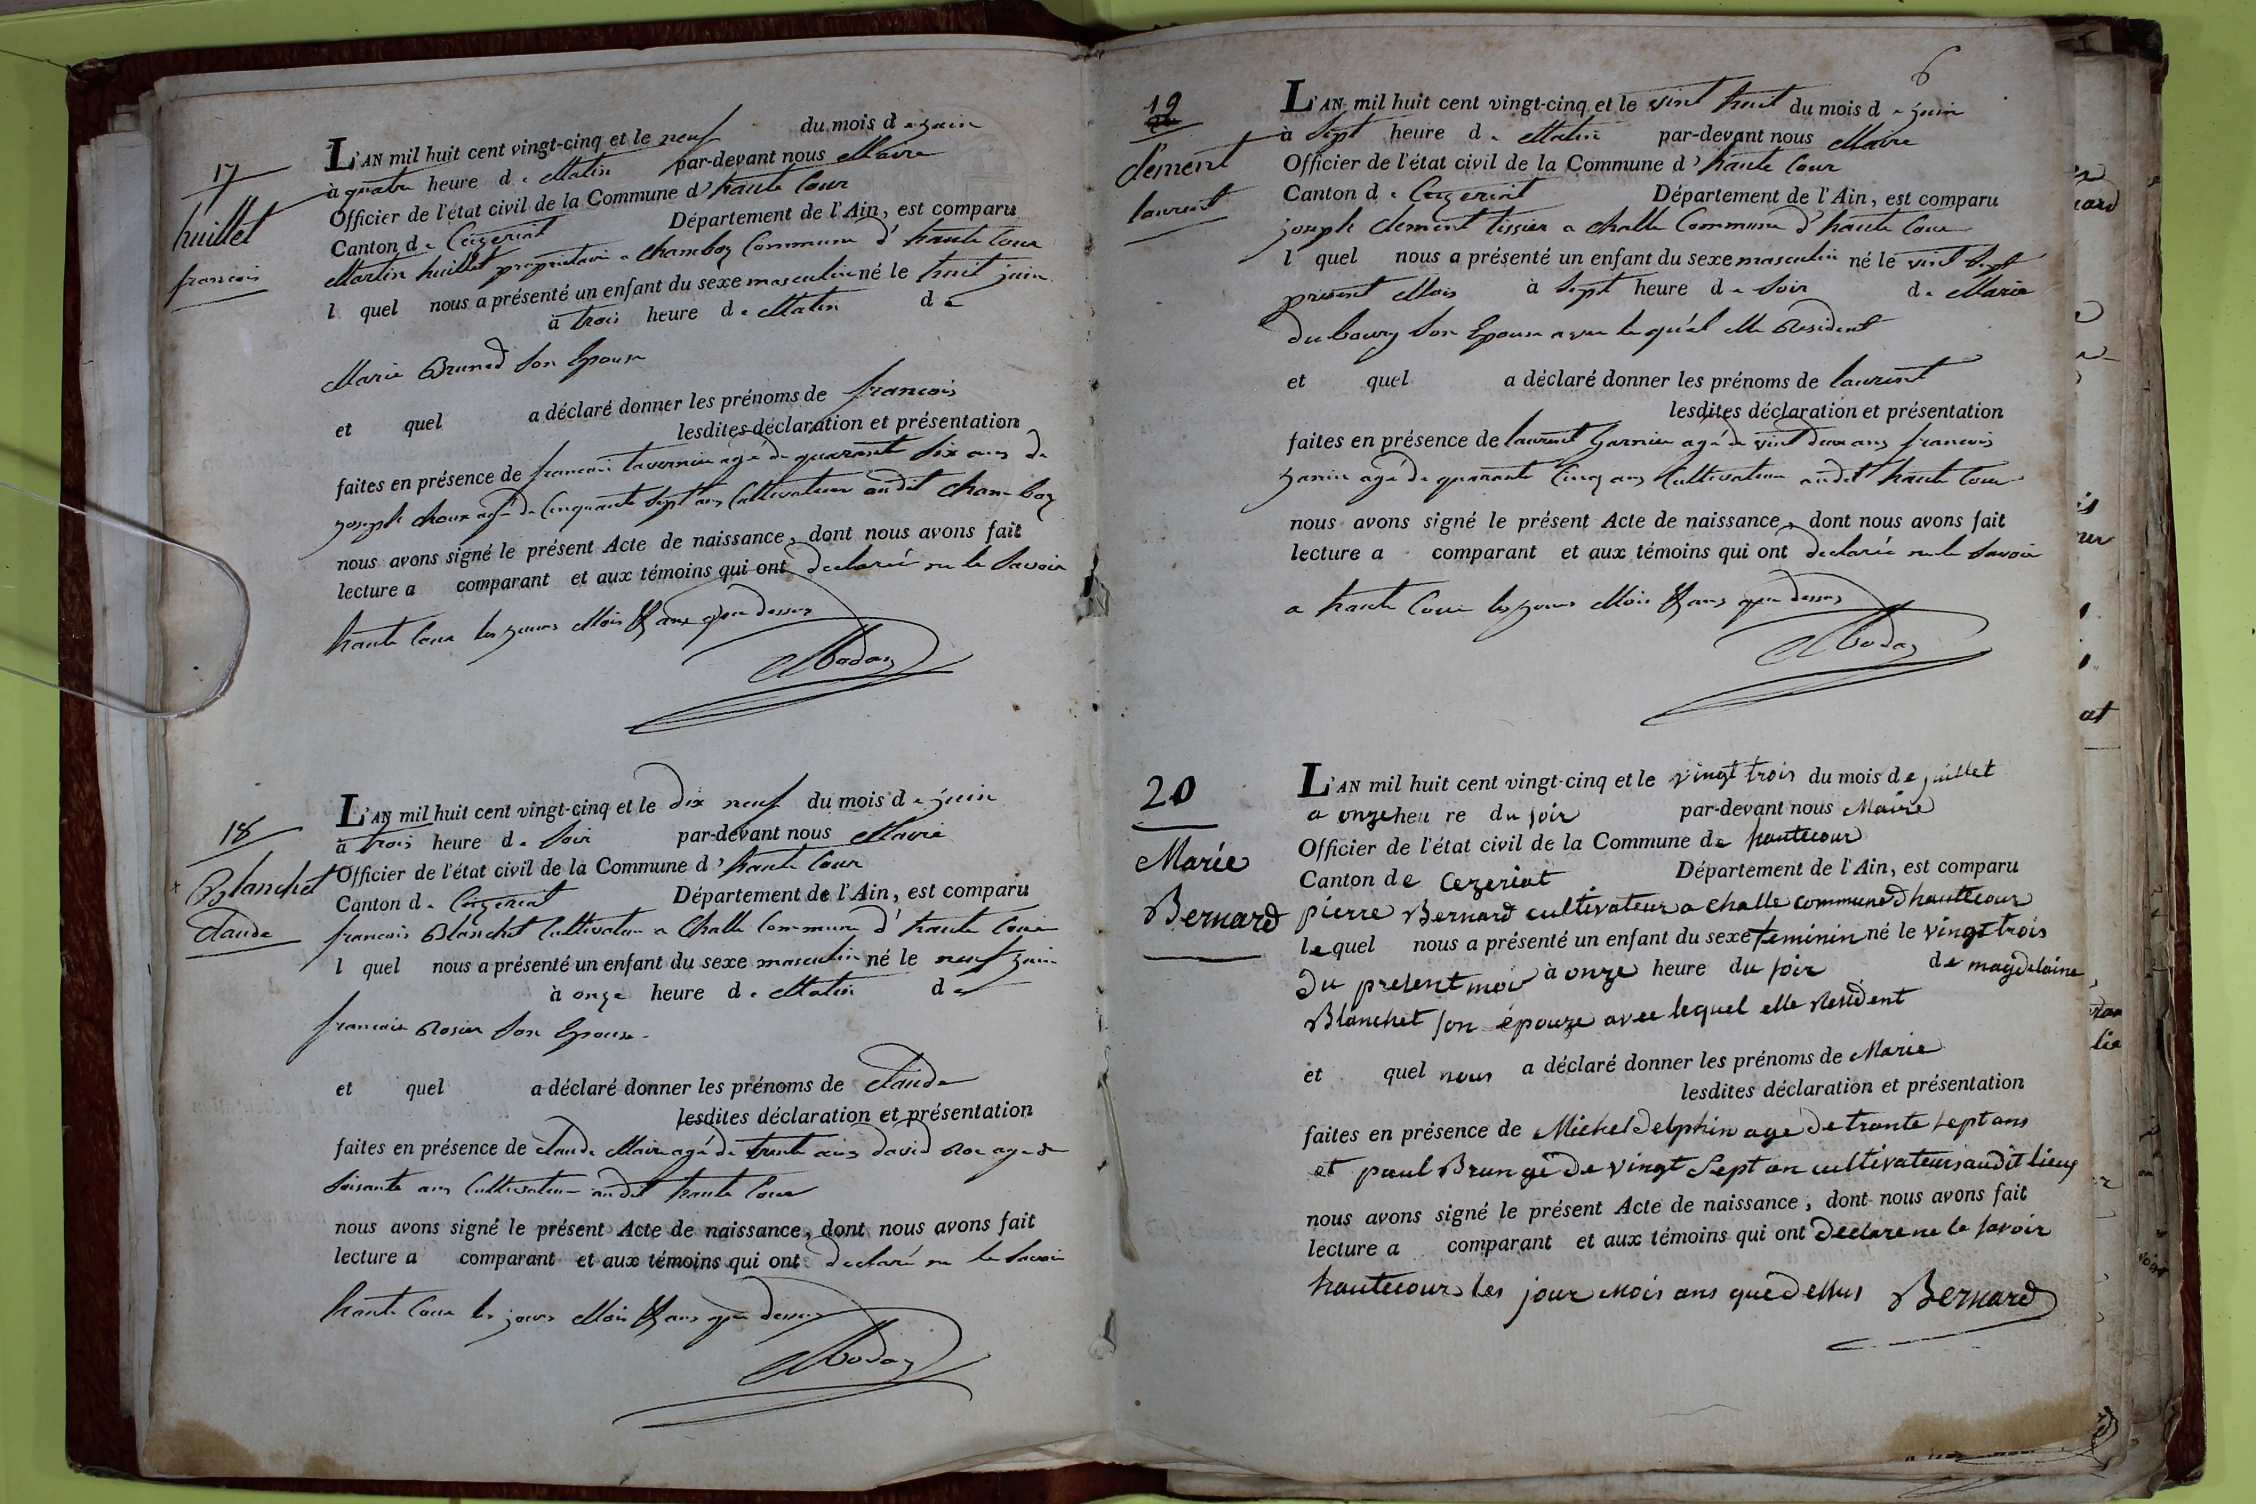 17
huillet
francois
L'AN mil huit cent vingt-cinq et le neuf du mois de juin
à quatre heure de Matin par-devant nous Maire
Officier de l'état civil de la Commune d'haute Cour
Canton de Ceizeriat Département de l'Ain, est comparu
Martin huillet propriétaire a Chamboz Commune d'haute Cour
l quel nous a présenté un enfant du sexe masculin né le huit juin
à trois heure de Matin de
Marie Brunod Son Epouse
et quel a déclaré donner les prénoms de francois
lesdites déclaration et présentation
faites en présence de francois tavernier agé de quarant Six ans de
joseph choux agé de Cinquante Sept ans Cultivateur audit Chamboz
nous avons signé le présent Acte de naissance, dont nous avons fait
lecture a comparant et aux témoins qui ont declaré ne le Savoir
haute Cour les jours Mois & ans que dessus
18
Blanchet
Claude
L'AN mil huit cent vingt-cinq et le dix neuf du mois de juin
à trois heure de Soir par-devant nous Maire
Officier de l'état civil de la Commune d'haute Cour
Canton de Ceizeriat Département de l'Ain, est comparu
francois Blanchet Cultivateur a Challe Commune d'haute Cour
l quel nous a présenté un enfant du sexe masculin né le neuf juin
à onze heure de Matin de
francoise Rosier Son Epouse
et quel a déclaré donner les prénoms de Claude
lesdites déclaration et présentation
faites en présence de Claude Maire agé de trente ans david Roc agé de
Soisante ans Cultivateur audit haute Cour
nous avons signé le présent Acte de naissance, dont nous avons fait
lecture a comparant et aux témoins qui ont declaré ne le Savoir
haute Cour les jours Mois & ans que dessus
6
19
Clement
laurent
L'AN mil huit cent vingt-cinq et le vint huit du mois de juin
à Sept heure de Matin par-devant nous Maire
Officier de l'état civil de la Commune d'haute Cour
Canton de Ceizeriat Département de l'Ain, est comparu
joseph Clement tissier a Challe Commune d'haute Cour
l quel nous a présenté un enfant du sexe masculin né le vint Sept
present Mois à Sept heure de Soir de Marie
dubourg Son Epouse avec le quel elle Resident
et quel a déclaré donner les prénoms de laurent
lesdites déclaration et présentation
faites en présence de laurent Garnier agé de vint deux ans francois
janin agé de quarante Cinq ans Cultivateur audit haute Cour
nous avons signé le présent Acte de naissance, dont nous avons fait
lecture a comparant et aux témoins qui ont declaré ne le Savoir
a haute Cour les jours Mois & ans que dessus
20
Marie
Bernard
L'AN mil huit cent vingt-cinq et le vingt trois du mois de juillet
a onze heu re du soir par-devant nous Maire
Officier de l'état civil de la Commune de hautecour
Canton de Cezeriat Département de l'Ain, est comparu
pierre Bernard cultivateur a Challe commune d hautecour
lequel nous a présenté un enfant du sexe feminin né le vingt trois
du present moi à onze heure du soir de magdelaine
Blanchet son épouze avec lequel elle Resident
et quel nous a déclaré donner les prénoms de Marie
lesdites déclaration et présentation
faites en présence de Michel Delphin age de trante sept ans
et paul Brun gé de vingt Sept an cultivateurs audit lieu
nous avons signé le présent Acte de naissance, dont nous avons fait
lecture a comparant et aux témoins qui ont Declare ne le savoir
hautecour les jour mois ans que dessus Bernard